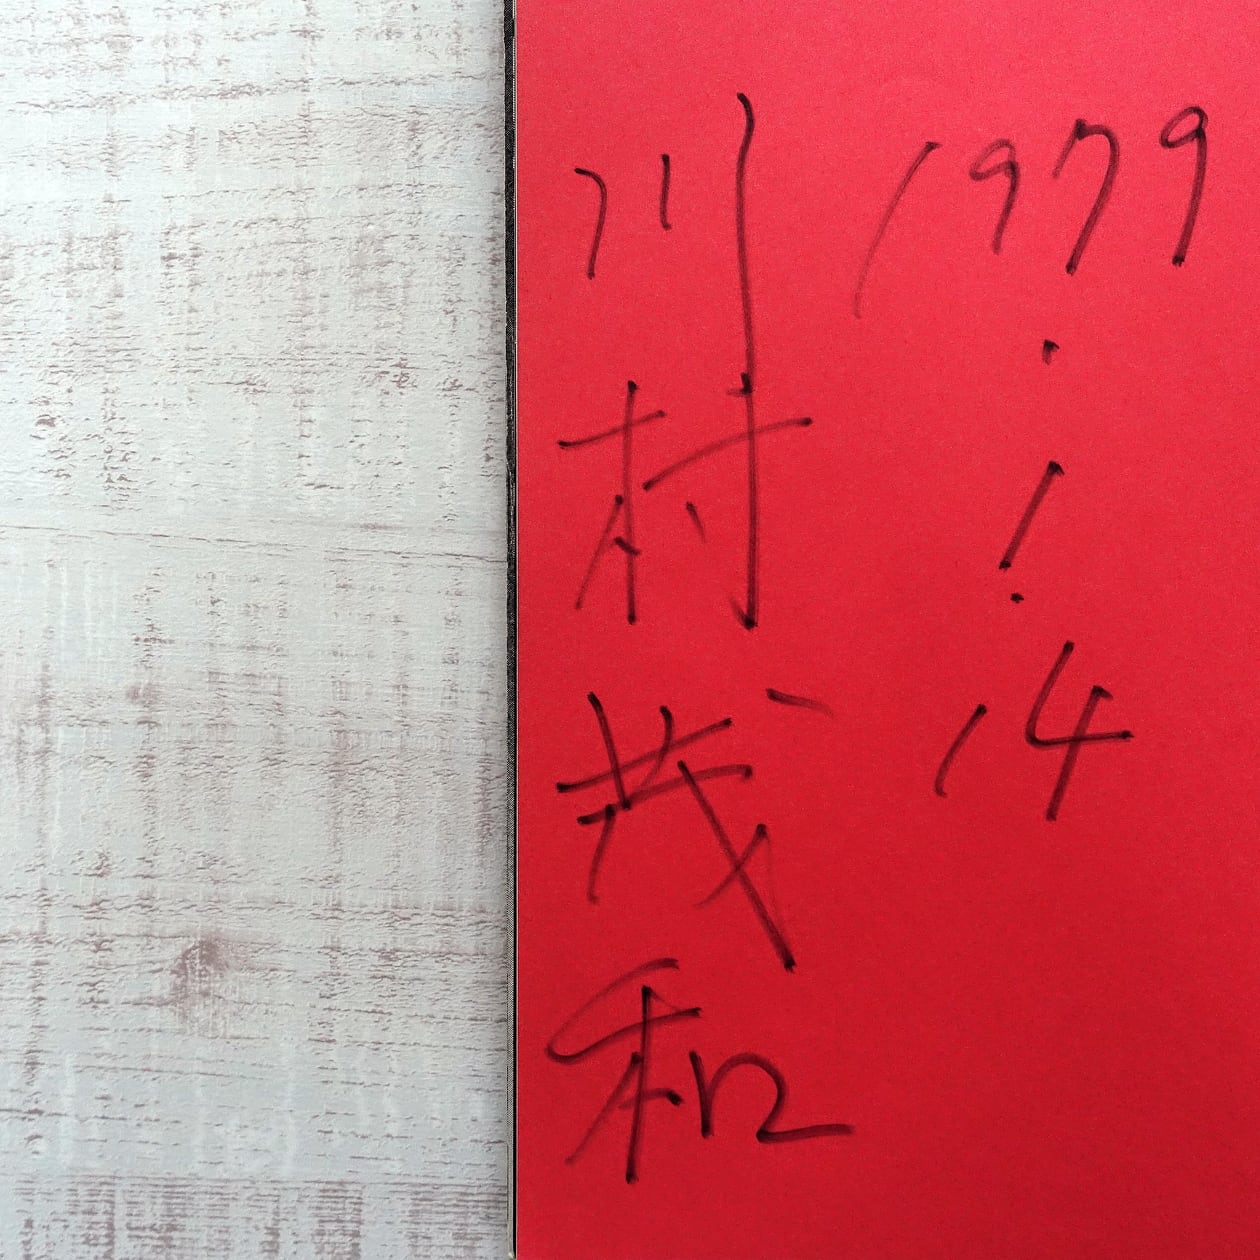 1979.1.14
川村茂和